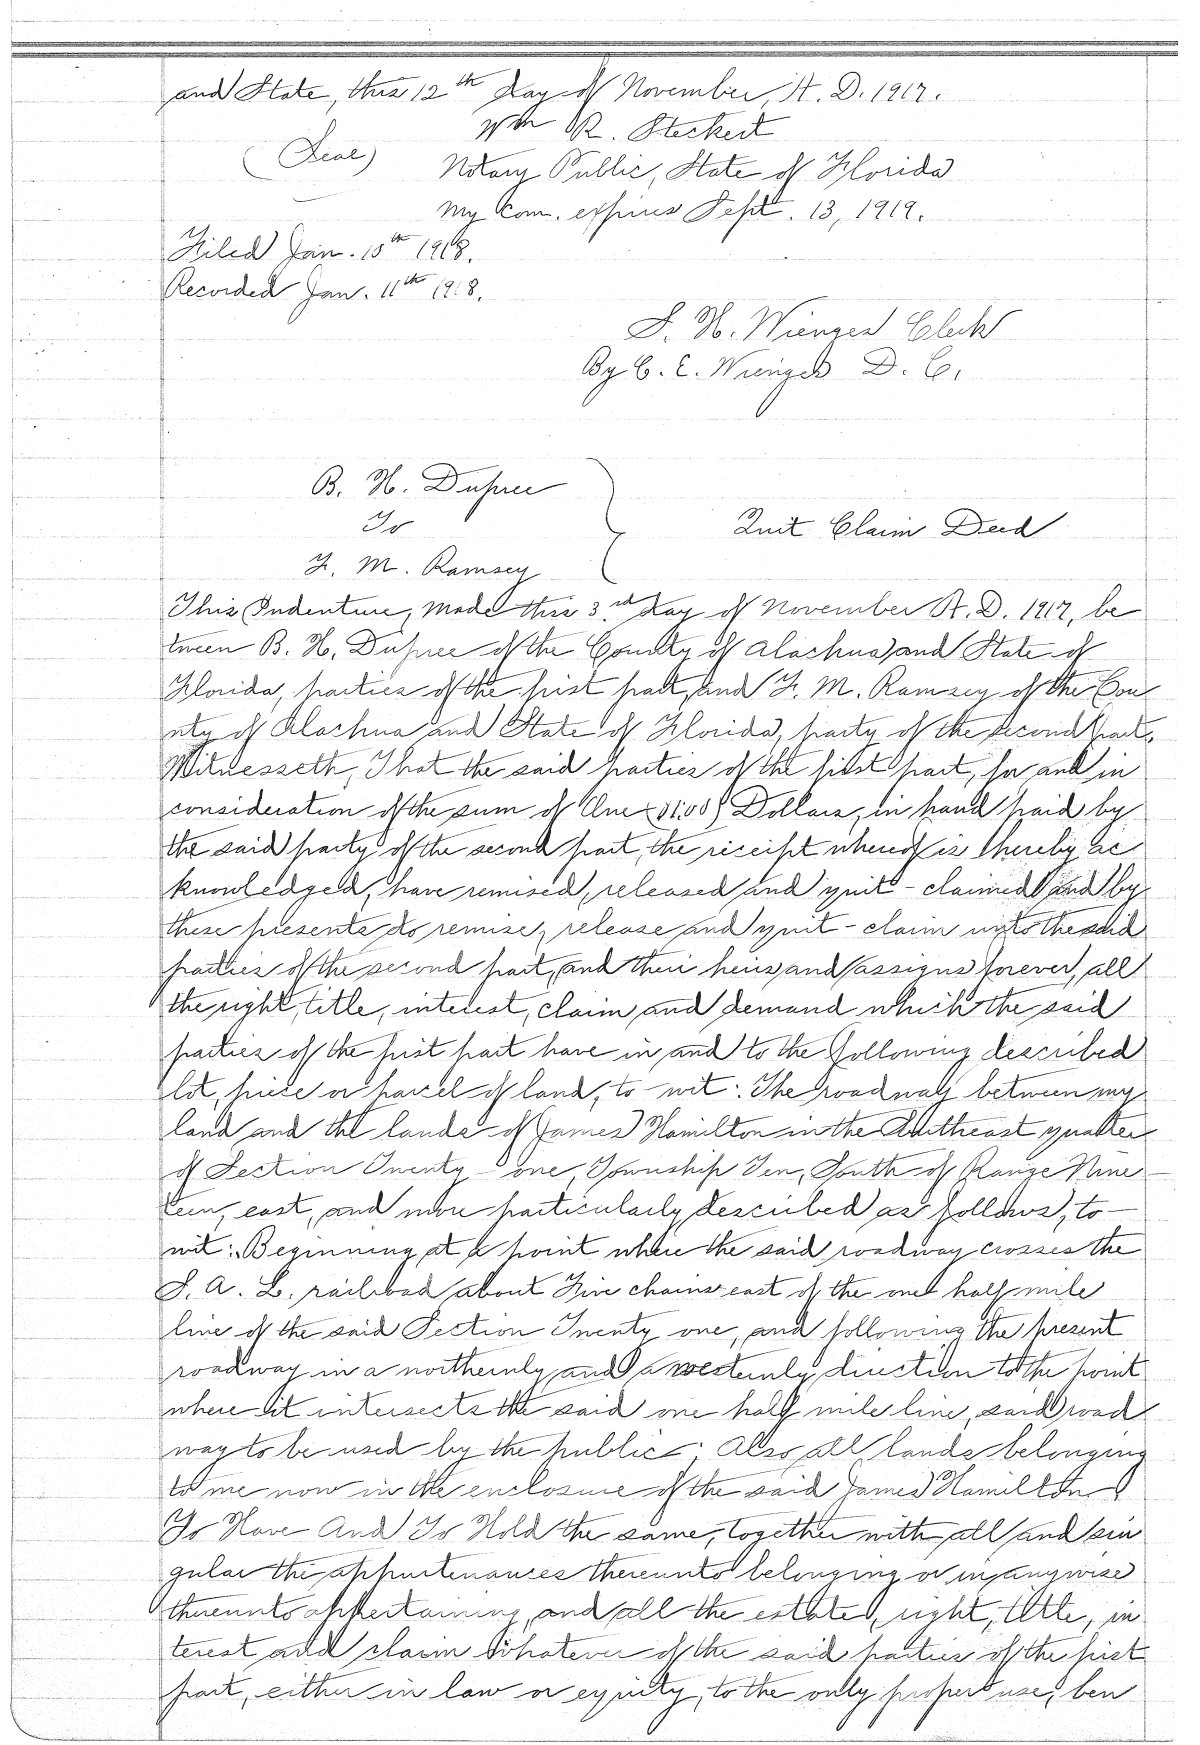 and State, this 12th day of November, A. D. 1917.
Wm R. Steckert
(Seal)
Notary Public, State of Florida
My Com. expires Sept. 13, 1919.
Filed Jan. 10th 1918.
Recorded Jan. 11th 1918.
S. H. Wienges Clerk
By C. E. Wienges D. C.
B. H. Dupree
To
F. M. Ramsey
Quit Claim Deed
This Indenture, Made this 3rd day of November A. D. 1917, be
tween B. H. Dupree of the County of Alachua and State of
Florida, parties of the first part, and F. M. Ramsey of the Cou
nty of Alachua and State of Florida, party of the second part,
Witnesseth, That the said parties of the first part, for and in
consideration of the sum of One ($1.00) Dollars, in hand paid by
the said party of the second part, the receipt whereof is hereby ac
knowledged, have remised, released and quit-claimed and by
these presents do remise, release and quit-claim unto the said
parties of the second part, and their heirs and assigns forever, all
the right, title, interest, claim and demand which the said
parties of the first part have in and to the following described
lot, piece or parcel of land, to wit: The roadway between my
land and the lands of James Hamilton in the Southeast quarter
of Section Twenty-one, Township Ten, South of Range Nine-
teen, east, and more particularly described as follows, to-
wit: Beginning at a point where the said roadway crosses the
S. A. L. railroad about Five chains east of the one half mile
line of the said Section Twenty one, and following the present
roadway in a northernly and a westernly direction to the point
where it intersects the said one half mile line, said road
way to be used by the public; Also all lands belonging
to me now in the enclosure of the said James Hamilton
To Have And To Hold the same, together with all and sin
gular the appurtenances thereunto belonging or in anywise
thereunto appertaining, and all the estate, right, title, in
terest and claim whatever of the said parties of the first
part, either in law or equity, to the only proper use, ben